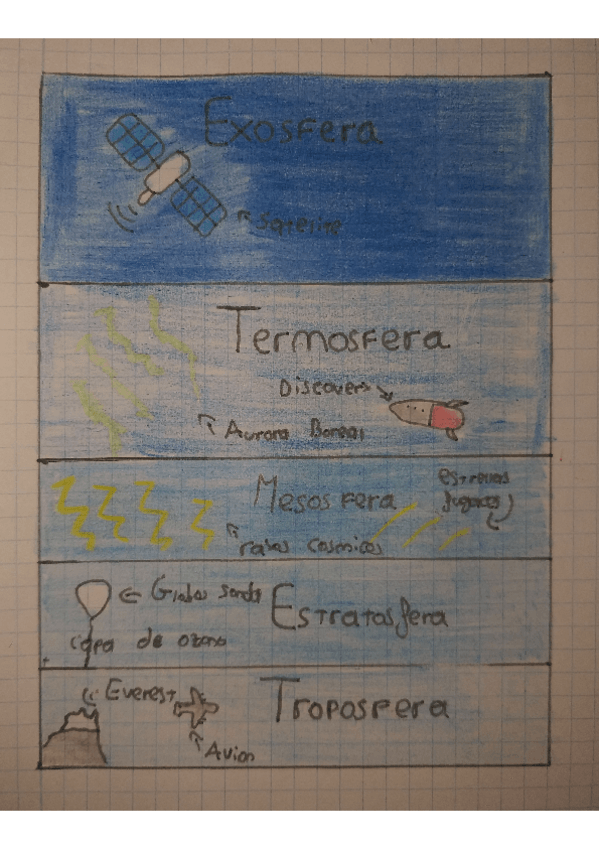 Exosfera
Satelite
Termosfera
Discovery
Aurora Boreal
Mesosfera
estrellas
fugaces
raios cosmicos
Globos sonda
Estratosfera
capa de ozono
Everest
Troposfera
Avion